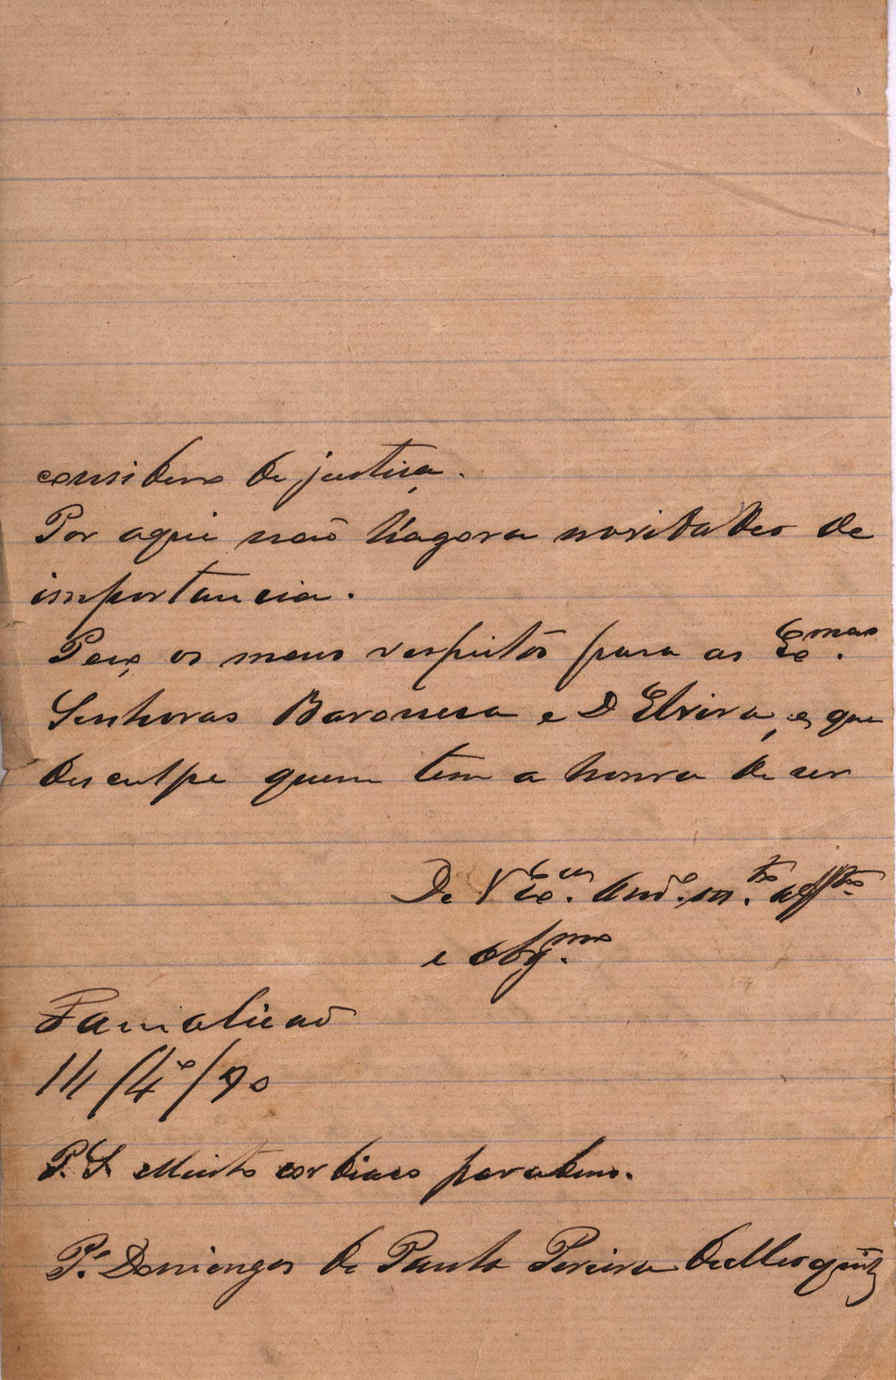 considero de justiça.
Por aqui não há agora novidades de
importancia.
Peço os meus respeitos para as Ex.mas
Senhoras Baroneza e D Elvira, e que
desculpe quem tem a honra de ser
De V Ex.cia Am.o m.to aff.to
e obg.mo
Famalicão
14/4º/90
P.S. Muito cordiaes parabens.
P.e Domingos de Paula Pereira de Mesquita